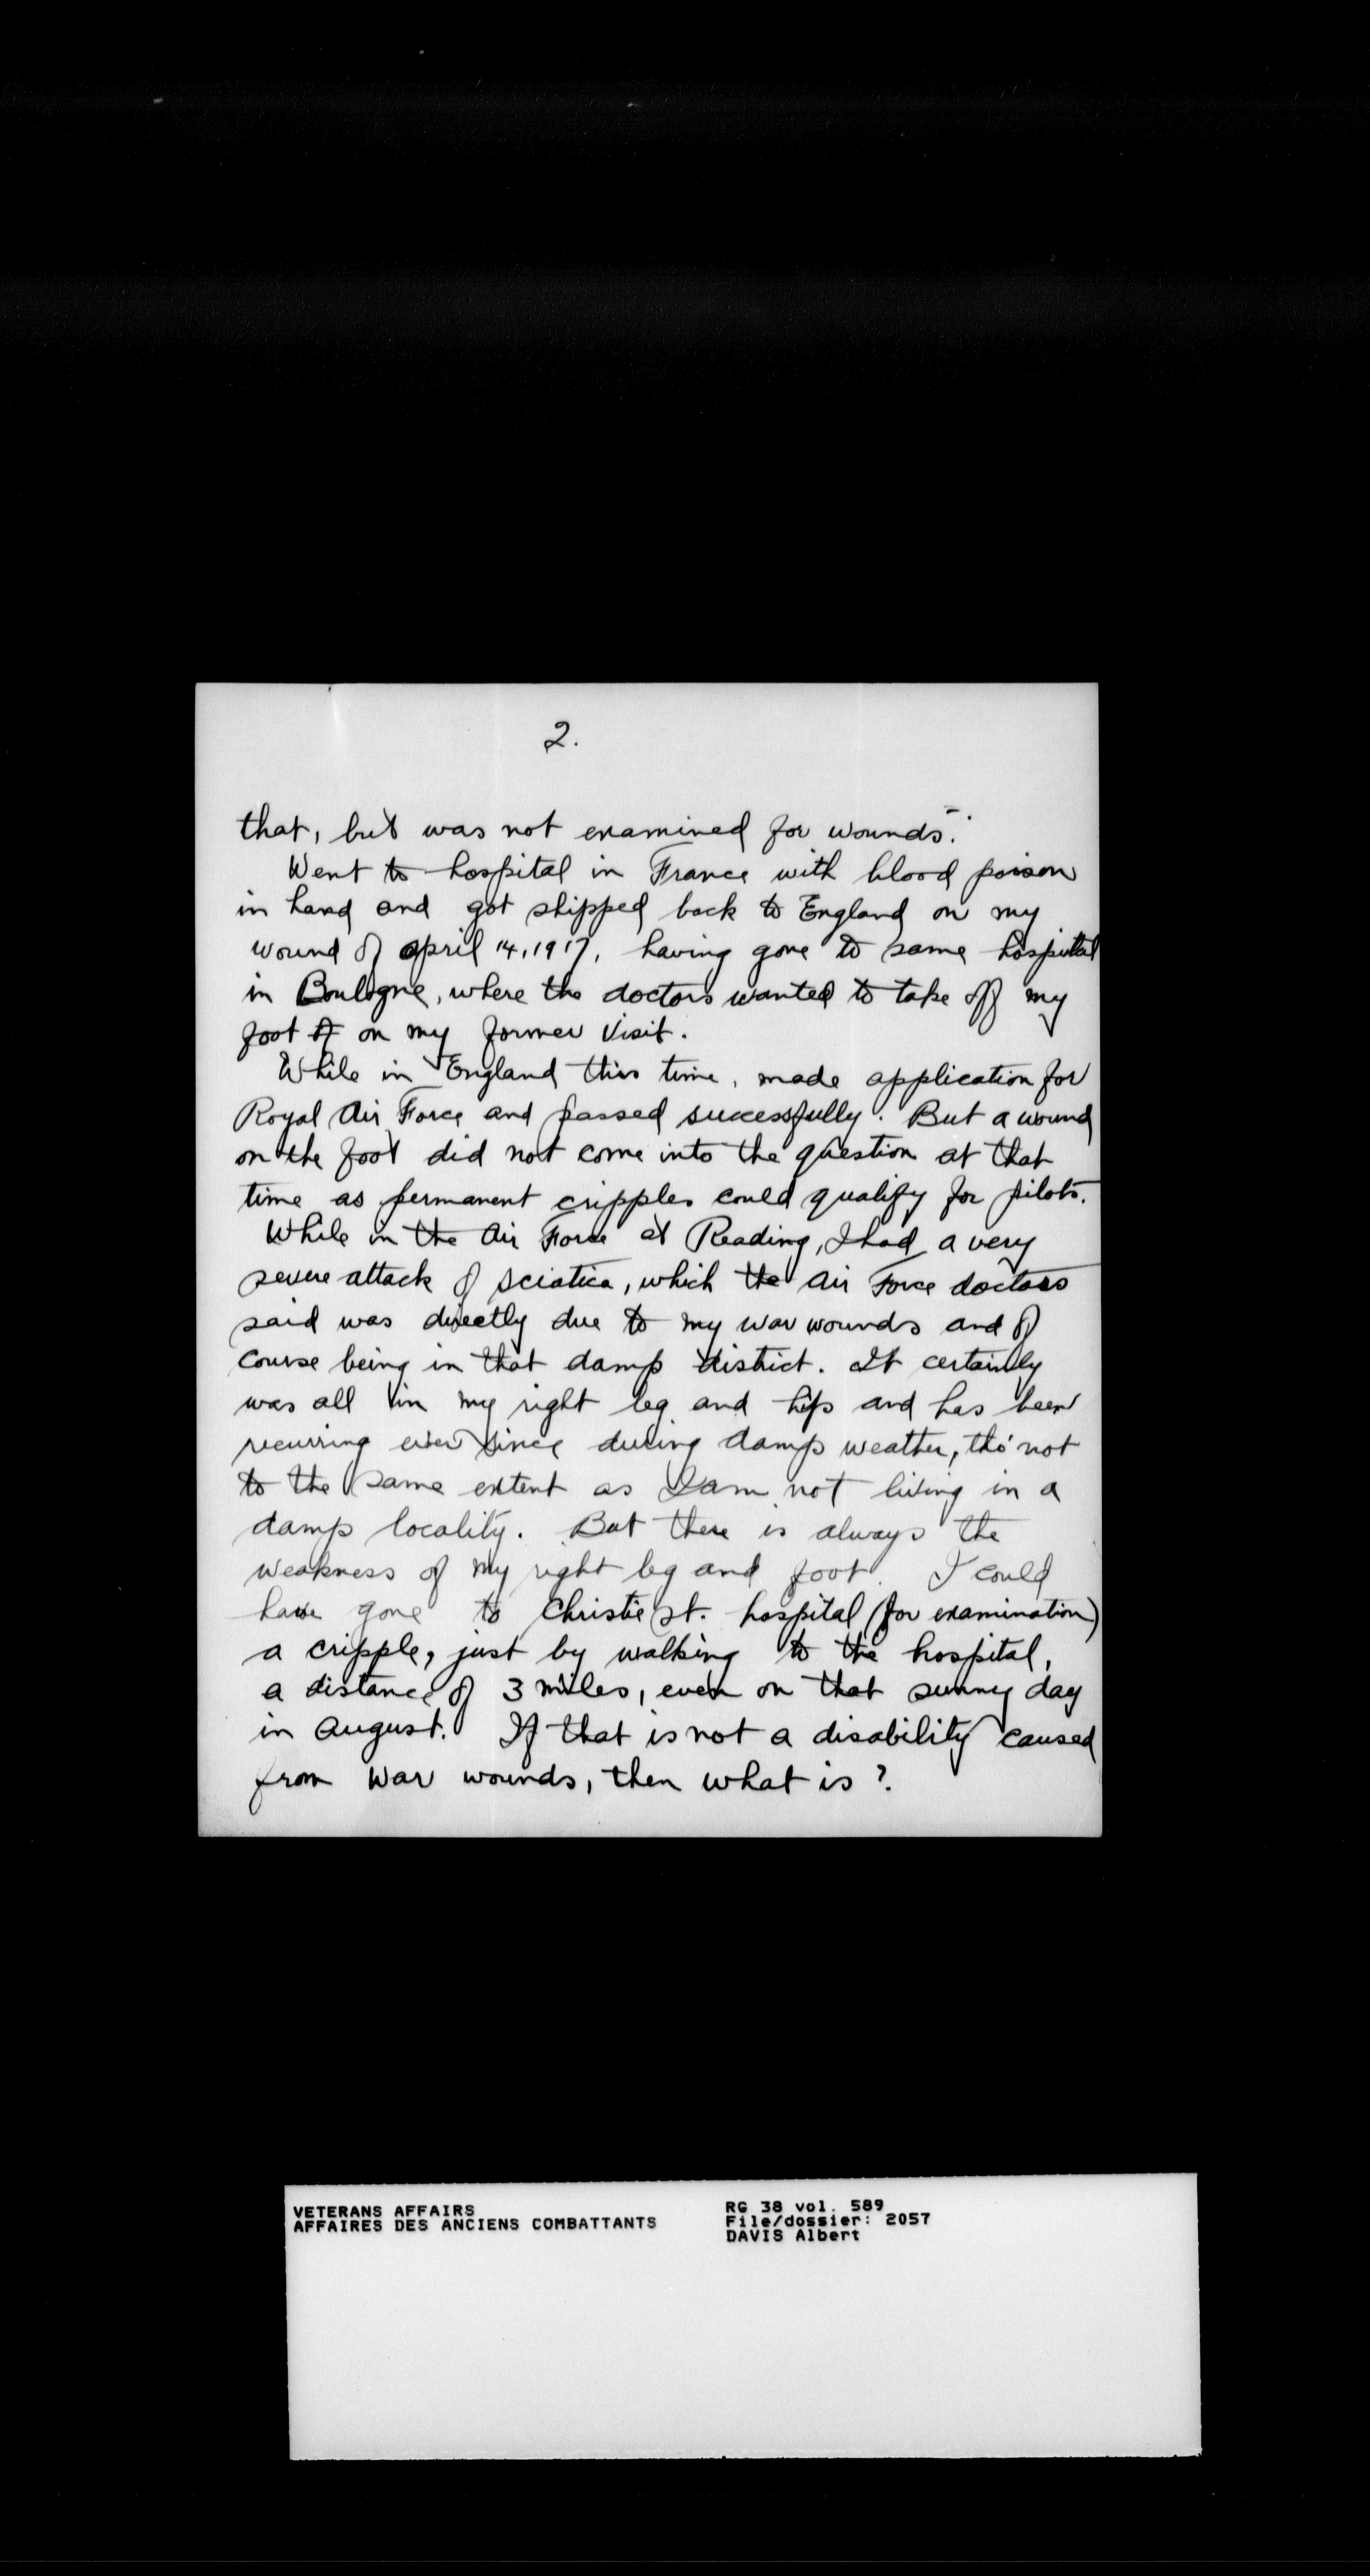 2.
that, but was not examined for wounds.
Went to hospital in France with blood poison
in hand and got shipped back to England on my
wound of april 14, 1917, having gone to same hospital
in Boulogne, where the doctors wanted to take off my
foot on my former visit.
While in England this time, made application for
Royal Air Force and passed successfully. But a wound
on the foot did not come into the question at that
time as permanent cripples could qualify for pilots.
While in the Air Force at Reading, I had a very
severe attack of sciatica, which the Air Force doctors
said was directly due to my war wounds and of
course being in that damp district. It certainly
was all in my right leg and hip and has been
recurring ever since during damp weather, tho' not
to the same extent as I am not living in a
damp locality. But there is always the
weakness of my right leg and foot. I could
have gone to Christie St. hospital (for examination)
a cripple, just by walking to the hospital,
a distance of 3 miles, even on that sunny day
in August. If that is not a disability caused
from war wounds, then what is?
VETERANS AFFAIRS
AFFAIRES DES ANCIENS COMBATTANTS
RG 38 vol. 589
File/dossier: 2057
DAVIS Albert